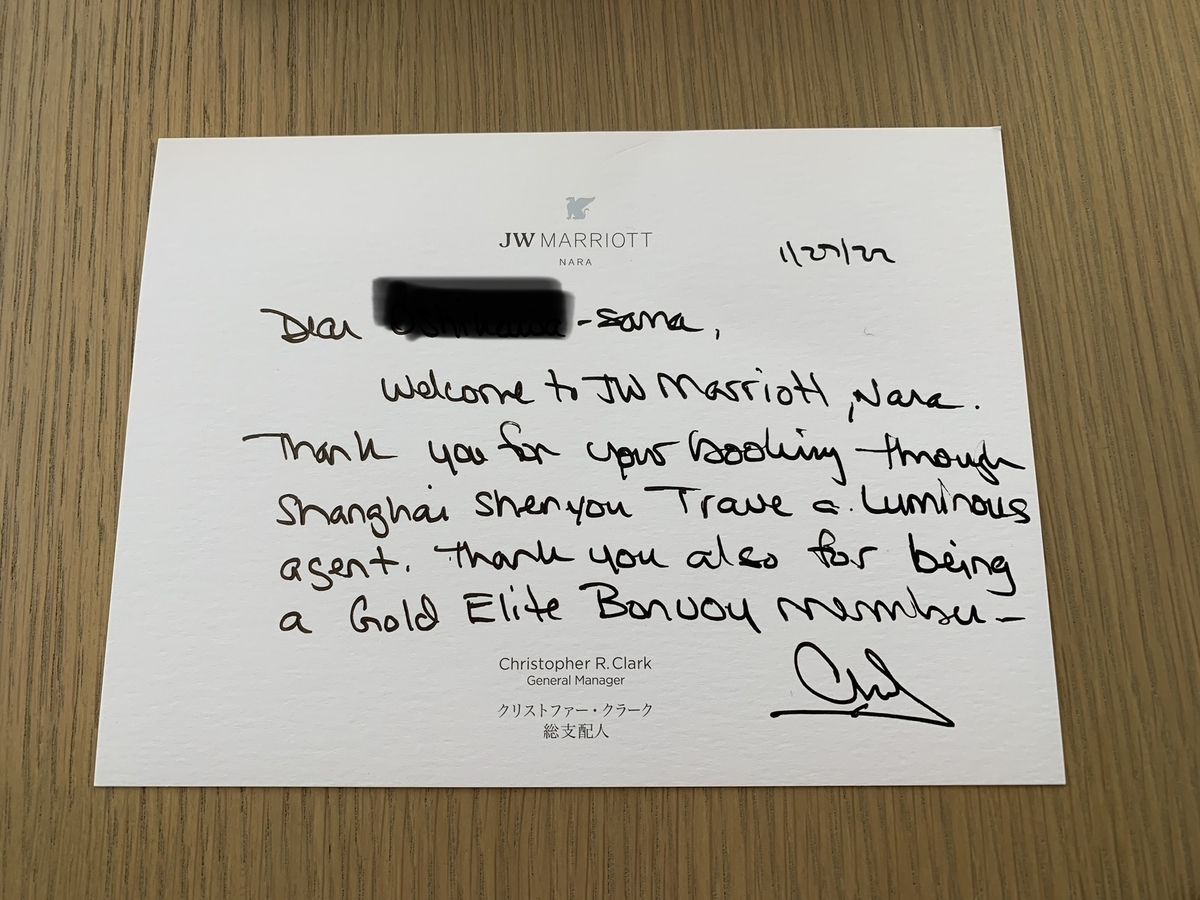 JW MARRIOTT
NARA
1/27/22
Dear -sama,
Welcome to JW Marriott, Nara.
Thank you for your booking through
Shanghai Shenyou Trave a Luminous
agent. Thank you also for being
a Gold Elite Bonvoy member-
Christopher R. Clark
General Manager
クリストファー・クラーク
総支配人